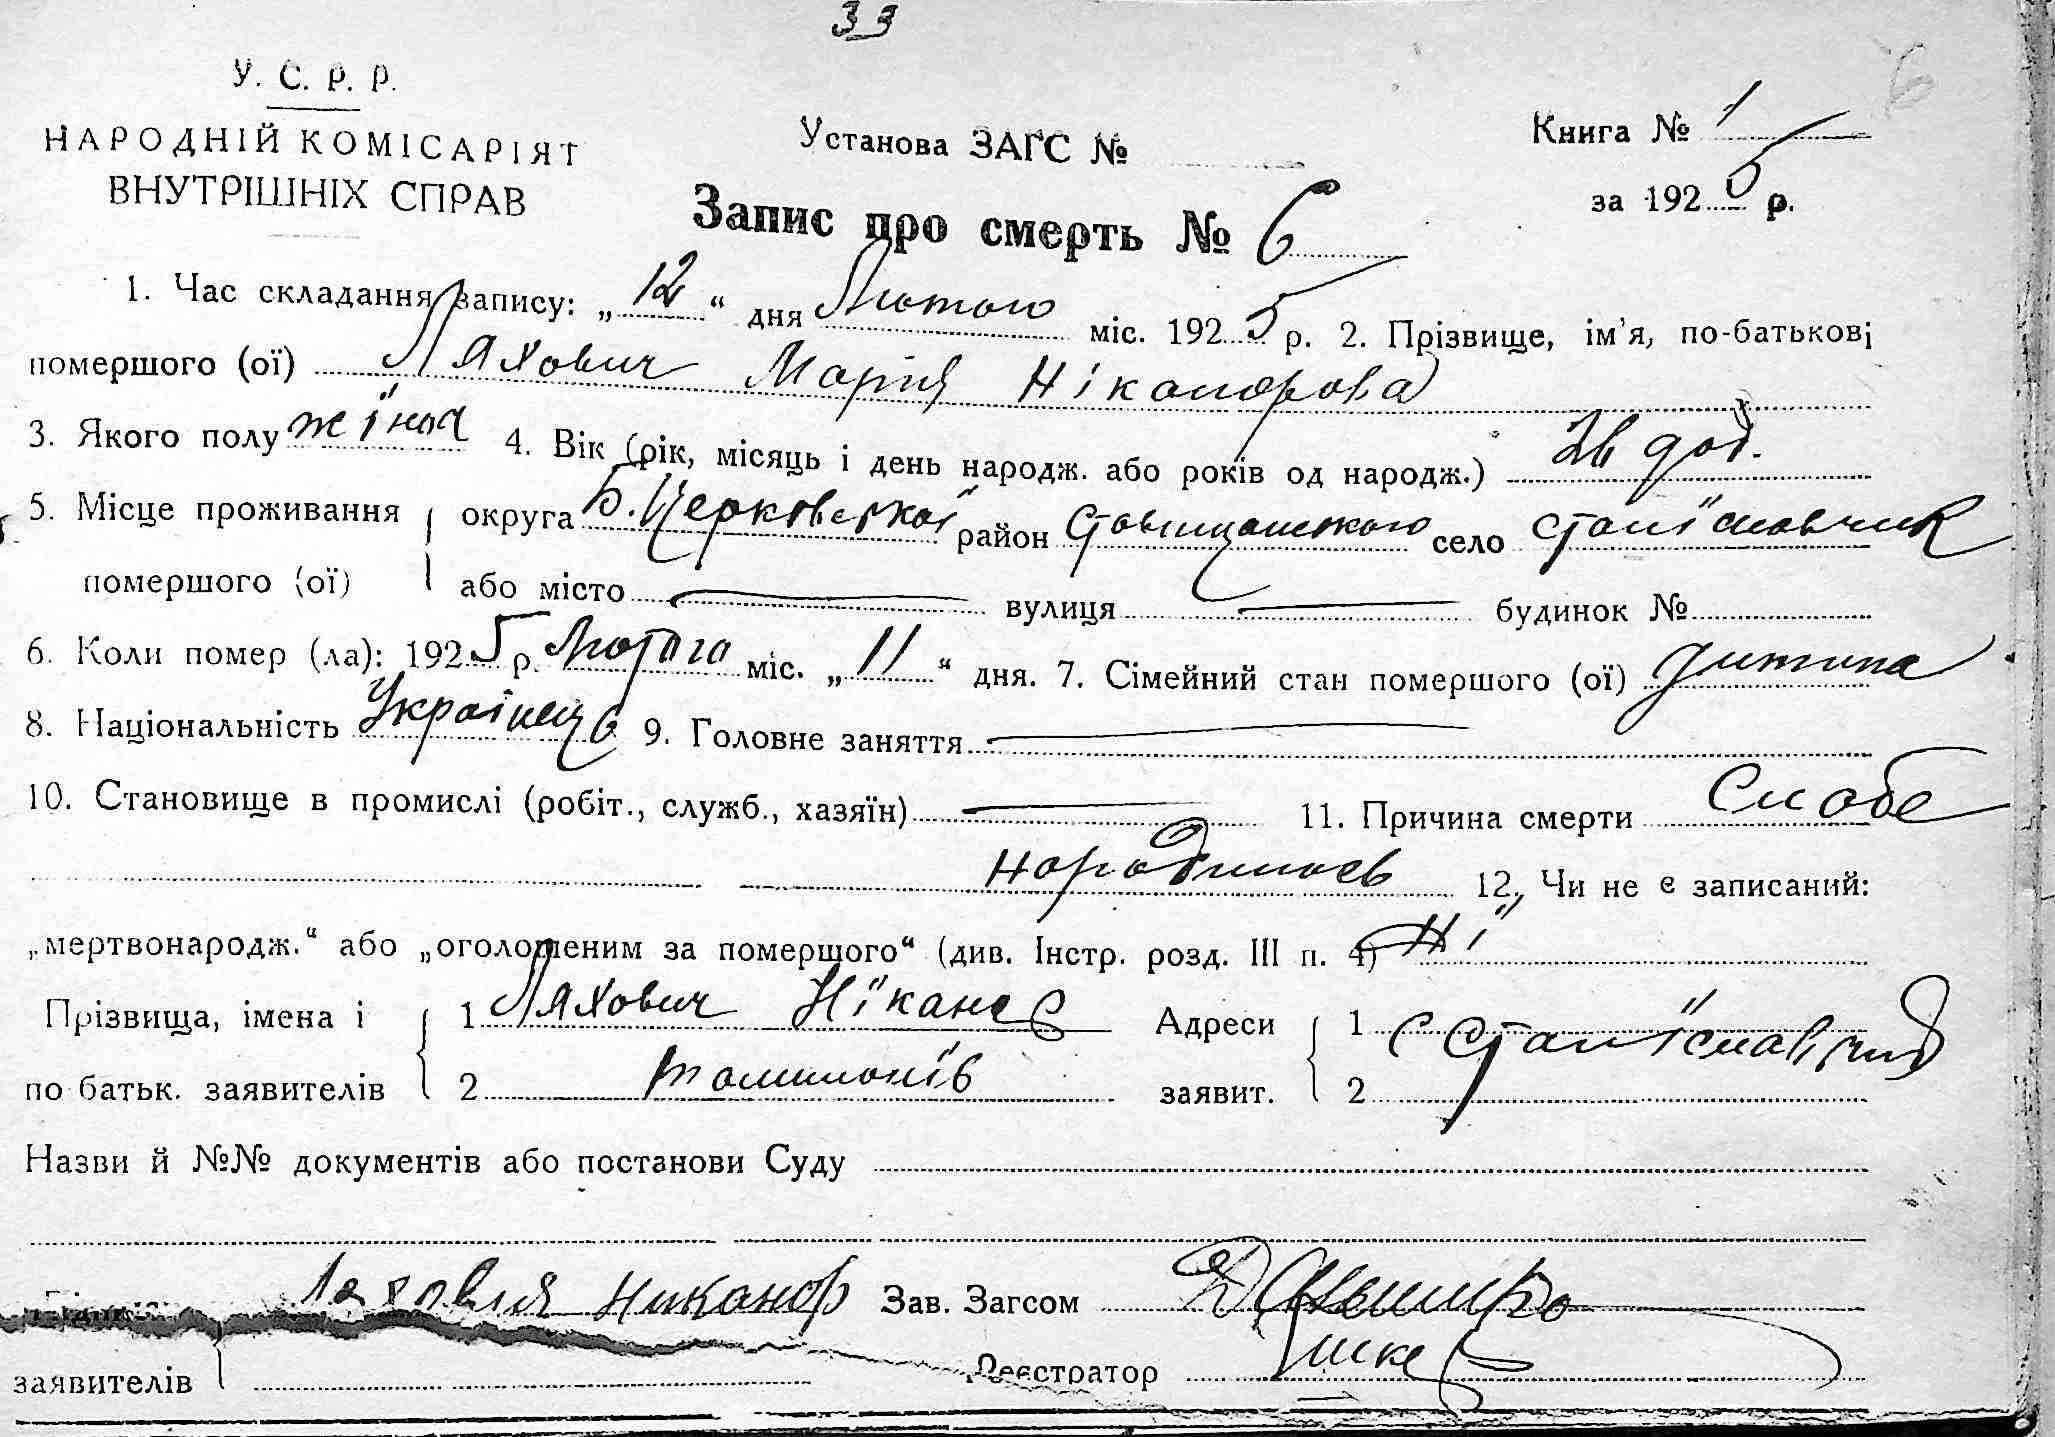 33
6
У. С. Р. Р.
НАРОДНІЙ КОМІСАРІЯТ
ВНУТРІШНІХ СПРАВ
Установа ЗАГС №
Книга № 1
за 1925 р.
Запис про смерть № 6
1. Час складання запису: „12“ дня Лютого міс. 1925 р. 2. Прізвище, ім'я, по-батькові
помершого (ої) Ляхович Марія Ніканорова
3. Якого полу жіноч 4. Вік (рік, місяць і день народж. або років од народж.)
5. Місце проживання округа Б. Церковської район Ставищанського село Станіславчик
помершого (ої) або місто вулиця будинок №
6. Коли помер (ла): 1925 р. Лютого міс. „11“ дня. 7. Сімейний стан помершого (ої) дитина
8. Національність Українец 9. Головне заняття
10. Становище в промислі (робіт., служб., хазяїн) 11. Причина смерти Слабе
народилось 12. Чи не є записаний:
„мертвонародж.“ або „оголошеним за помершого“ (див. Інстр. розд. III п. 4) Ні
Прізвища, імена і 1 Ляхович Ніканор Адреси 1 с Станіславчик
по батьк. заявителів 2 заявит. 2
Назви й №№ документів або постанови Суду
Ляхович Никанор Зав. Загсом
заявителів Реєстратор